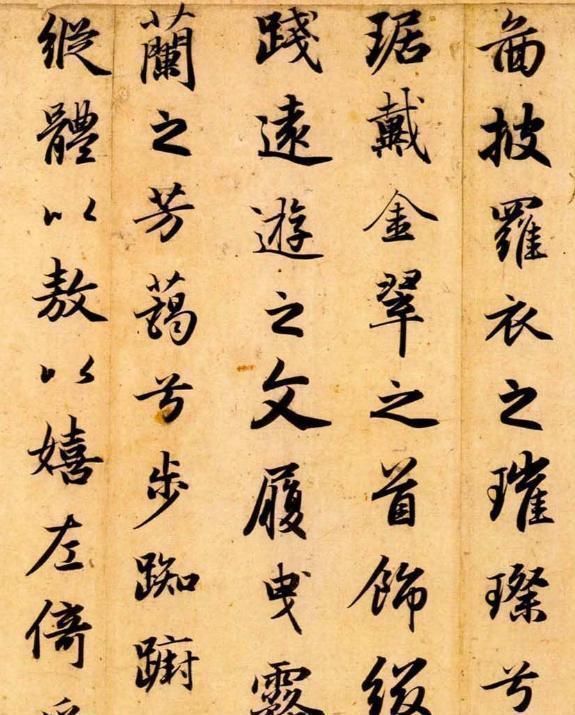 面披羅衣之璀璨兮
琚戴金翠之首飾綴
踐遠遊之文履曳霧
蘭之芳藹兮步踟躕
縱體以敖以嬉左倚采